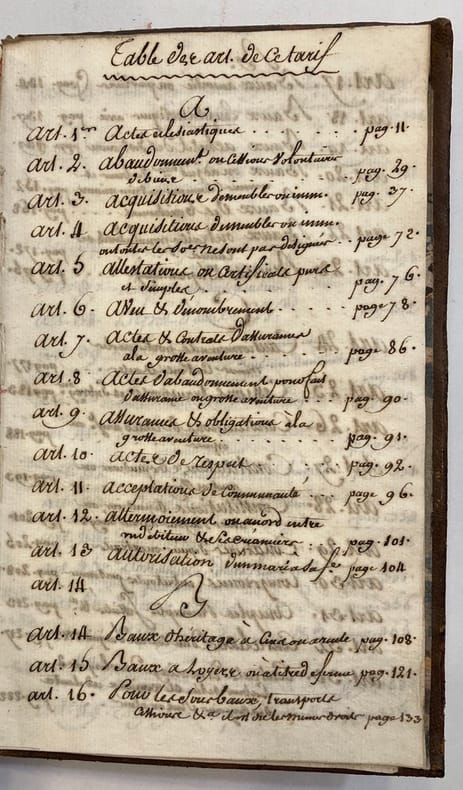 Table des art. de Ce tarif
A
art. 1er Actes eclesiastiques . . . . . . pag. 11.
art. 2. abandonnemt. ou Cessions Volontaires
de biens . . . . . . . pag. 29.
art. 3. acquisitions de meubles ou imm. pag. 37.
art. 4 acquisitions de meubles ou imm.
ou toutes les Som. ne sont pas designées . . page 72.
art. 5 attestations ou Certificats purs
et simples . . . . . . . pag. 76.
art. 6. aveu & denombrement . . . . . page 78.
art. 7. actes & Contrats d'assurances
a la grosse aventure . . . . . . page 86.
art. 8 actes d'abandonnement pour fait
d'assurance ou grosse aventure . . . . pag. 90.
art. 9. assurances & obligations à la
grosse aventure . . . . . . . pag. 91.
art. 10. actes de respect . . . . . . pag. 92.
art. 11. acceptations de Communauté . . . page 96.
art. 12. attermoiement ou acord entre
un debiteur & ses Creanciers : . . pag. 101.
art. 13 autorisation d'un mari a sa fe. page 104
art. 14
B
art. 14 Baux d'héritage à Cens ou arcule. pag. 108.
art. 15 Baux a Loyers ou à titre de ferme pag. 121.
art. 16. Pour les sous baux, transports
Cessions &a il est du les memes droits page 133